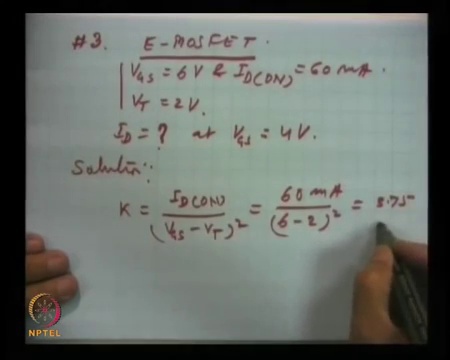 #3. E-MOSFET.
V_GS = 6V & I_D(ON) = 60 mA.
V_T = 2V.
I_D = ? at V_GS = 4V.
Solution:
K = I_D(ON) / (V_GS - V_T)^2 = 60 mA / (6-2)^2 = 3.75
NPTEL